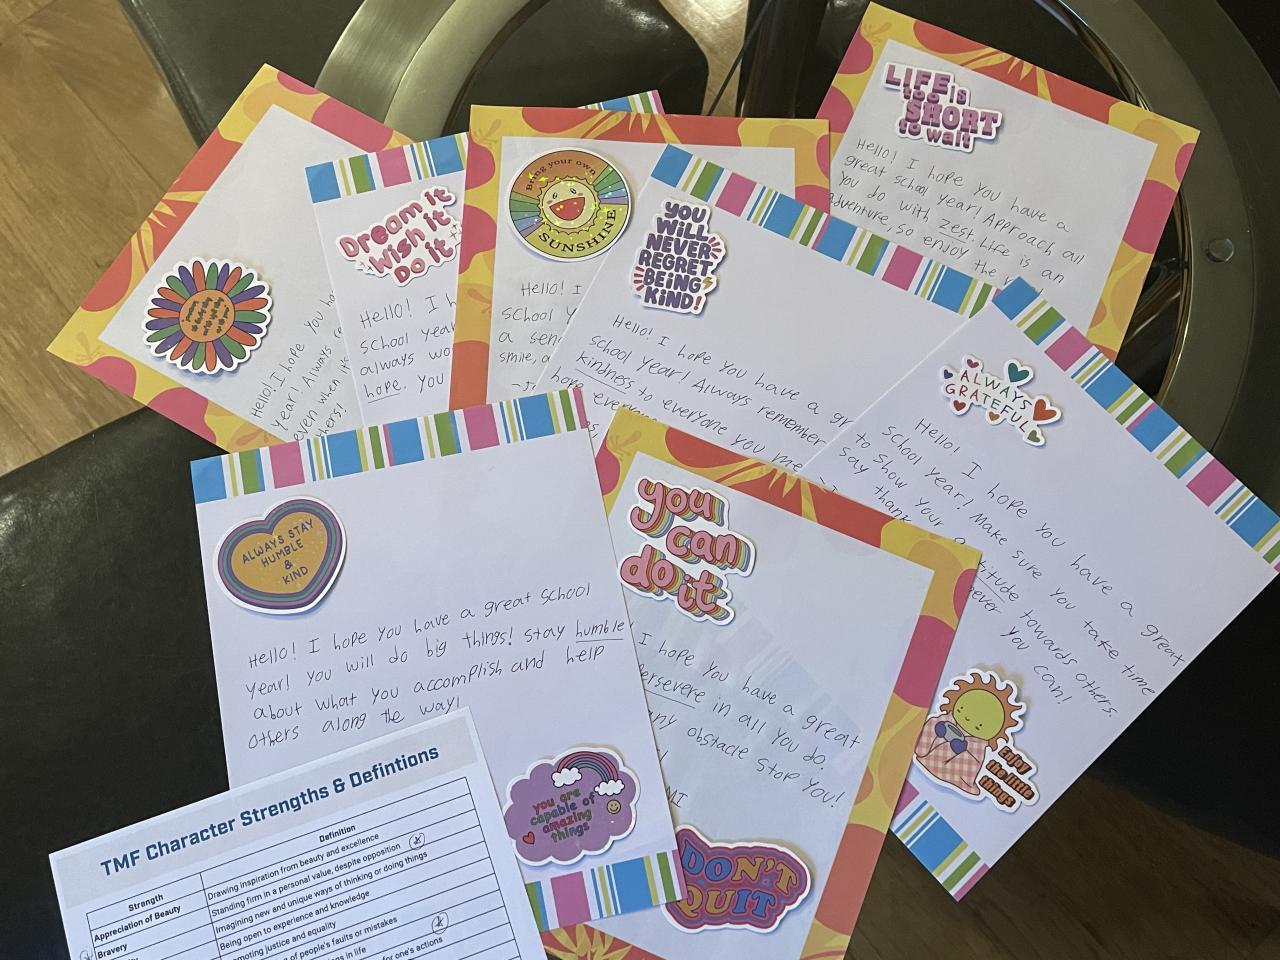 LIFE is
too
SHORT
to wait
Hello! I hope you have a
great school year! Approach all
you do with zest. Life is an
adventure, so enjoy the
Hello! I hope you
year! Always
even when it's
Dream it
Wish it
Do it
Hello! I
school year
always
hope. You
Bring your own
SUNSHINE
Hello! I
school
a
smile,
YOU
WILL
NEVER
REGRET
BEING
KIND!
Hello! I hope you have a
school year! Always remember
kindness to everyone you
ALWAYS
GRATEFUL
Hello! I hope you have a great
school year! Make sure you take time
to show your towards others.
say ever you can!
Enjoy
the little
things
ALWAYS STAY
HUMBLE
&
KIND
Hello! I hope you have a great school
year! You will do big things! Stay humble
about what you accomplish and help
others along the way!
you are
capable of
amazing
things
you
can
do it
I hope you have a great
persevere in all you do.
any obstacle stop you!
MI
DON'T
QUIT
TMF Character Strengths & Defintions
Strength Definition
Appreciation of Beauty Drawing inspiration from beauty and excellence
Bravery Standing firm in a personal value, despite opposition
Imagining new and unique ways of thinking or doing things
Being open to experience and knowledge
moting justice and equality
of people's faults or mistakes
in life
for one's actions